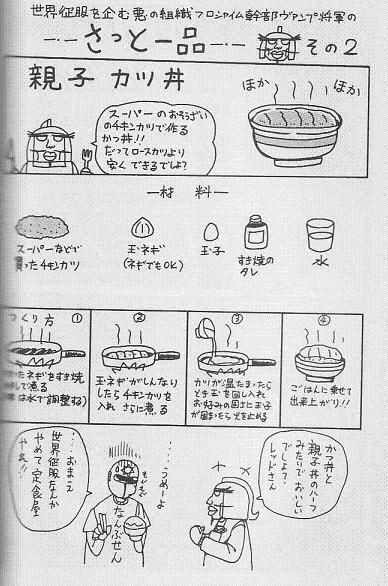 世界征服を企む悪の組織フロシャイム幹部ヴァンプ将軍の
さっと一品
その2
親子カツ丼
スーパーのおそうざい
のチキンカツで作る
かつ丼!!
だってロースカツより
安くできるでしょ?
ほか
ほか
材料
スーパーなどで
買ったチキンカツ
玉ネギ
(ネギでもOK)
玉子
すき焼の
タレ
水
つくり方
①
ネギをすき焼
で煮る
は水で調整ね)
②
玉ネギがしんなり
したらチキンカツを
入れ さらに煮る
③
カツが温たまったら
とき玉を回し入れ
お好みの固さに玉子
が固まったら火を止める
④
ごはんに乗せて
出来上がり!!
かつ丼と
親子丼のハーフ
みたいでおいしい
でしょ?
レッドさん
・・・・うめーよ
もぐもぐ
なんぶせん
・・・おまえ
世界征服なんか
やめて定食屋
やれ!!